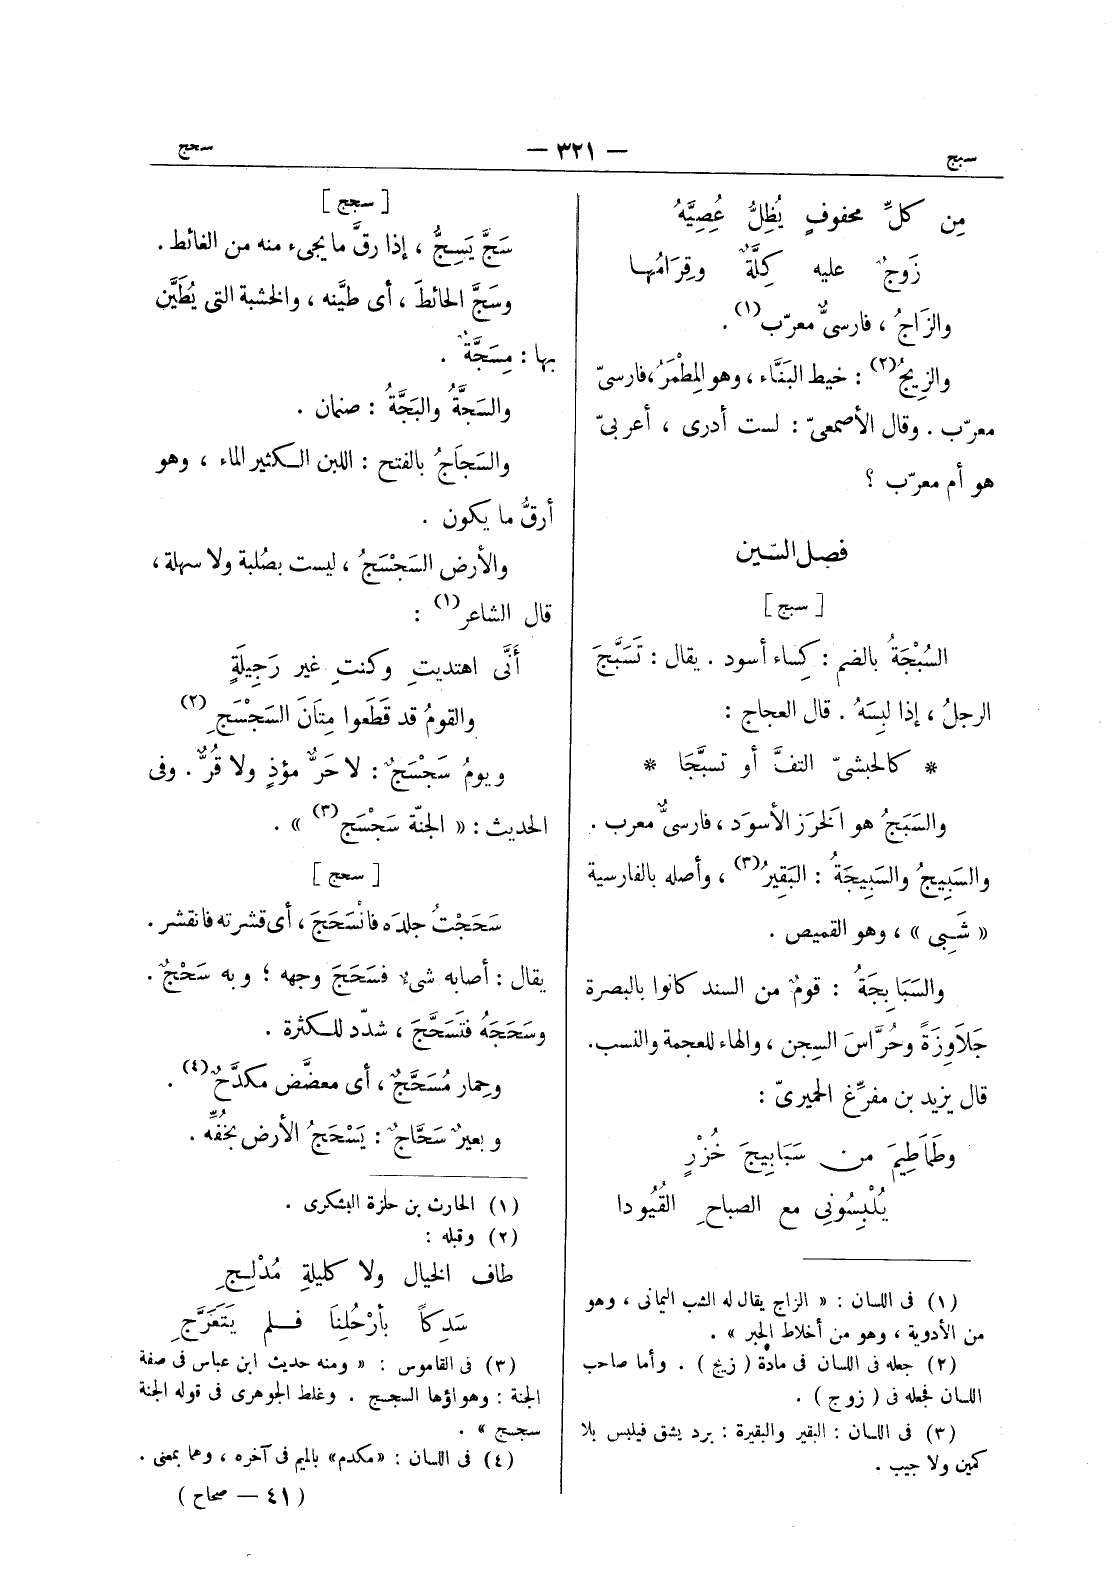 سبج
— ٣٢١ —
سحج
مِن كلِّ محفوفٍ يُظِلُّ عُصِيَّهُ
زَوجٌ عليه كِلَّةٌ وقِرَامُها
والزَاجُ ، فارسىٌّ معرّب(١) .
والزِيجُ(٢) : خيط البَنَّاء ، وهو المِطْمَرُ ، فارسىّ
معرّب . وقال الأصمعىّ : لست أدرى ، أعربىّ
هو أم معرّب ؟
فصل السّين
[ سبج ]
السُبْجَةُ بالضم : كِساء أسود . يقال : تَسَبَّجَ
الرجلُ ، إذا لبِسَهُ . قال العجاج :
* كالحبشىّ التفَّ أو تسبَّجَا *
والسَبَجُ هو الَخرَز الأسوَد ، فارسىٌّ معرب .
والسَبِيجُ والسَبِيجَةُ : البَقِيرُ(٣) ، وأصله بالفارسية
« شَبِى » ، وهو القميص .
والسَبَابِجَةُ : قومٌ من السند كانوا بالبصرة
جَلَاوِزَةً وحُرَّاسَ السِجن ، والهاء للعجمة والنسب.
قال يزيد بن مفرِّغ الحميرىّ :
وطَمَاطِيمَ من سَبَابِيجَ خُزْرٍ
يُلْبِسُونِى مع الصباحِ القُيُودا
(١) فى اللسان : « الزاج يقال له الشب اليمانى ، وهو
من الأدوية ، وهو من أخلاط الحِبر » .
(٢) جعله فى اللسان فى مادة ( زيج ) . وأما صاحب
اللسان فجعله فى ( زوج ) .
(٣) فى اللسان : البقير والبقيرة : برد يشق فيلبس بلا
كمين ولا جيب .
[ سجج ]
سَجَّ يَسِجُّ ، إذا رقَّ ما يجىء منه من الغائط .
وسَجَّ الحائطَ ، أى طيَّنه ، والخشبة التى يُطَيَّن
بها : مِسَجَّةٌ .
والسَجَّةُ والبَجَّةُ : صنمان .
والسَجَاجُ بالفتح : اللبن الكثير الماء ، وهو
أرقُّ ما يكون .
والأرض السَجْسَجُ ، ليست بصُلبة ولا سهلة ،
قال الشاعر(١) :
أَنَّى اهتديتِ وكنتِ غير رَجِيلَةٍ
والقومُ قد قَطَعوا مِتَانَ السَجْسَجِ(٢)
ويومٌ سَجْسَجٌ : لا حَرٌّ مؤذٍ ولا قُرٌّ . وفى
الحديث : « الجنّة سَجْسَج(٣) » .
[ سحج ]
سَحَجْتُ جلدَه فانْسَحَجَ ، أى قشرته فانقشر .
يقال : أصابه شىءٌ فسَحَجَ وجهه ؛ وبه سَحْجٌ .
وسَحَجَهُ فتَسَحَّجَ ، شدّد للكثرة .
وحِمار مُسَحَّجٌ ، أى معضَّض مكدَّحٌ(٤) .
وبعيرٌ سَحَّاجٌ : يَسْحَجُ الأرض بخُفِّه .
(١) الحارث بن حلزة اليشكرى .
(٢) وقبله :
طاف الخيال ولا كليلةِ مُدْلِجِ
سَدِكاً بأرْحُلِنَا فلم يَتَعَرَّجِ
(٣) فى القاموس : « ومنه حديث ابن عباس فى صفة
الجنة : وهواؤها السجسج . وغلط الجوهرى فى قوله الجنة
سجسج » .
(٤) فى اللسان : «مكدم» بالميم فى آخره ، وهما بمعنى .
( ٤١ — صحاح )